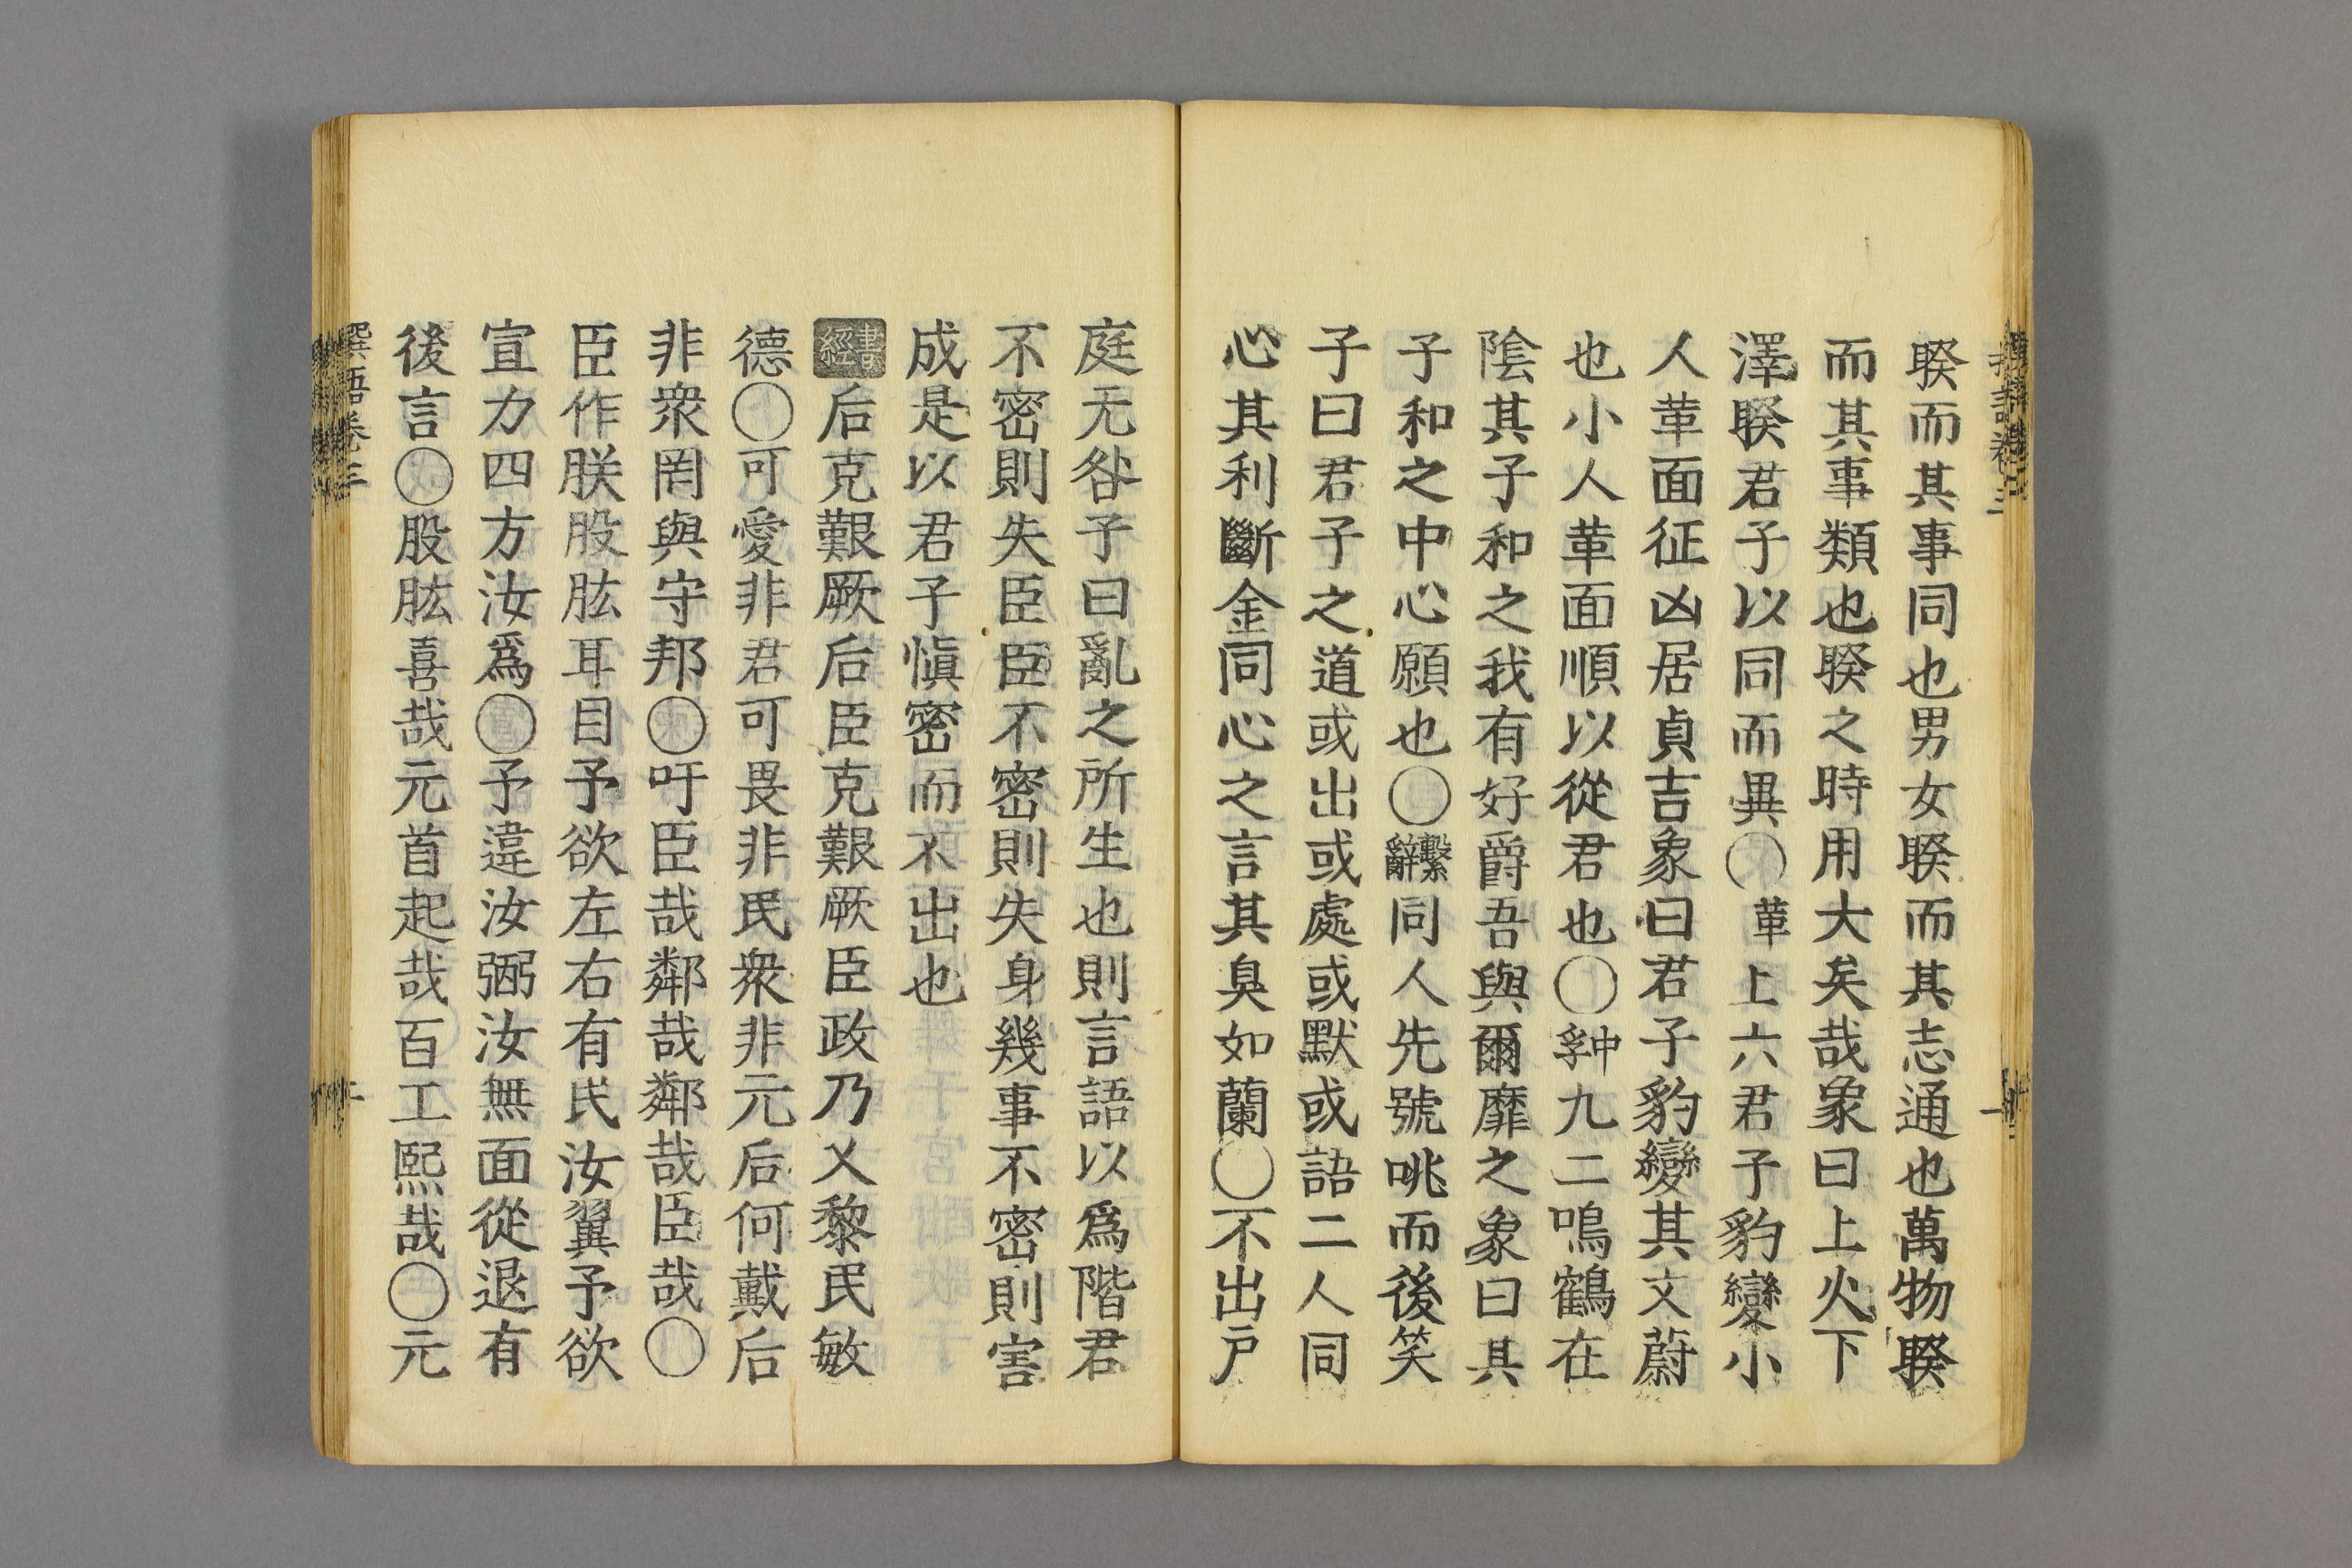 睽而其事同也男女睽而其志通也萬物睽
而其事類也睽之時用大矣哉象曰上火下
澤睽君子以同而異○革上六君子豹變小
人革面征凶居貞吉象曰君子豹變其文蔚
也小人革面順以從君也○中孚九二鳴鶴在
陰其子和之我有好爵吾與爾靡之象曰其
子和之中心願也○繫辭同人先號咷而後笑
子曰君子之道或出或處或默或語二人同
心其利斷金同心之言其臭如蘭○不出戶
庭无咎子曰亂之所生也則言語以爲階君
不密則失臣臣不密則失身幾事不密則害
成是以君子愼密而不出也
書經后克艱厥后臣克艱厥臣政乃乂黎民敏
德○可愛非君可畏非民衆非元后何戴后
非衆罔與守邦○吁臣哉鄰哉鄰哉臣哉○
臣作朕股肱耳目予欲左右有民汝翼予欲
宣力四方汝爲○予違汝弼汝無面從退有
後言○股肱喜哉元首起哉百工熙哉○元
語卷三